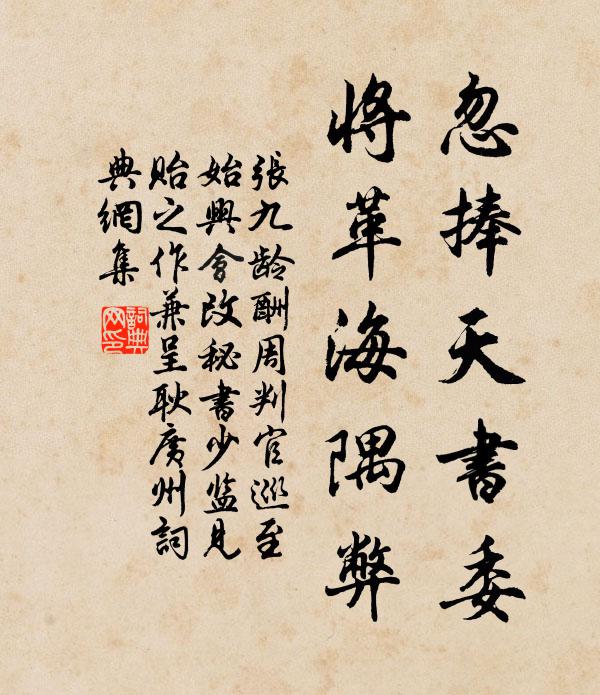 忽捧天書委
將革海隅弊
張九龄酬周判官巡至
始興會改秘書少監見
貽之作兼呈耿廣州詞
典網集
詞典
网印